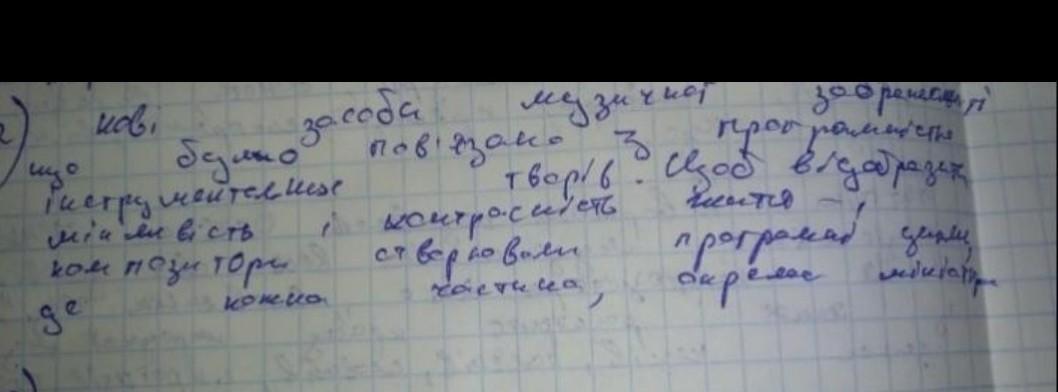 2) нові засоби музичної зображеності
що було пов'язано з програмністю
інструментальних творів. Щоб відобразити
мінливість і контрасність життя –,
композитори створювали програмні цикли,
де кожна частина, окрема мініатюра